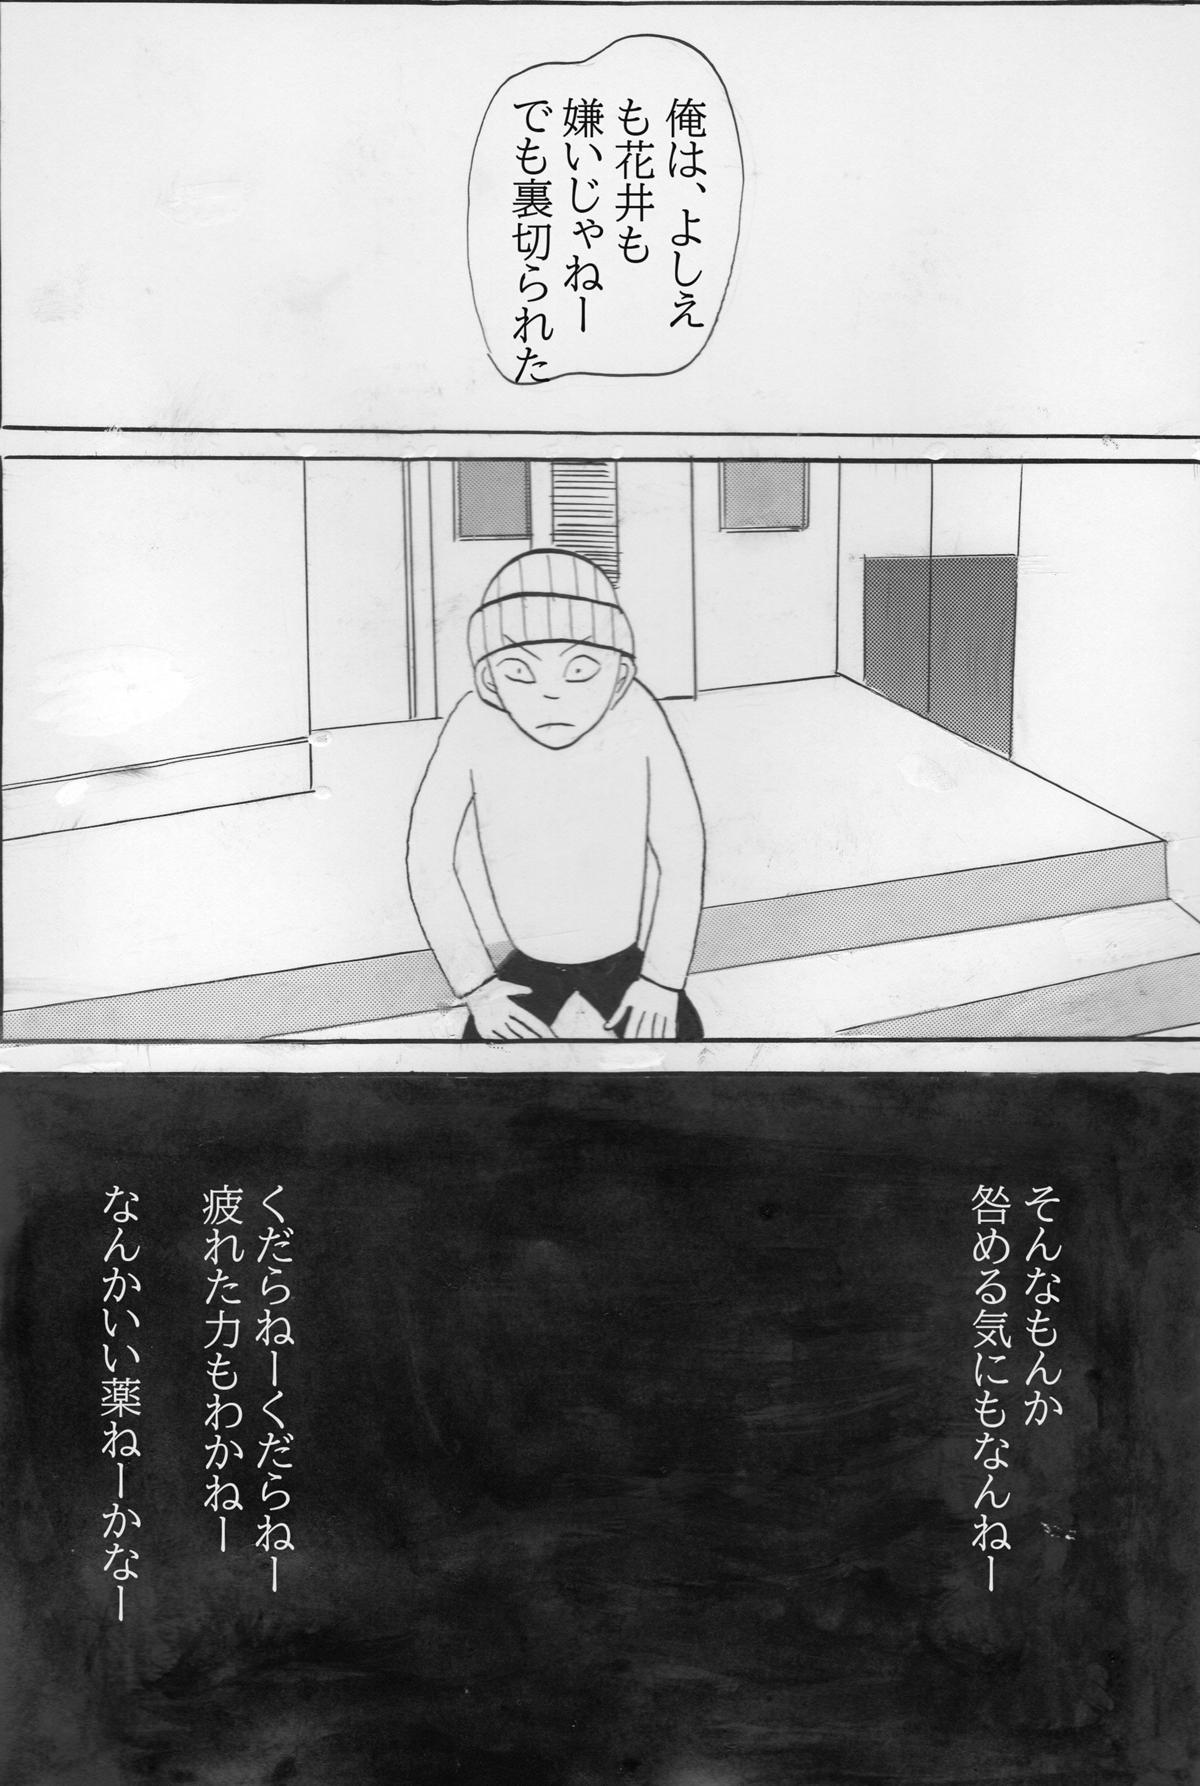 俺は、よしえ
も花井も
嫌いじゃねー
でも裏切られた
そんなもんか
咎める気にもなんねー
くだらねーくだらねー
疲れた力もわかねー
なんかいい薬ねーかなー